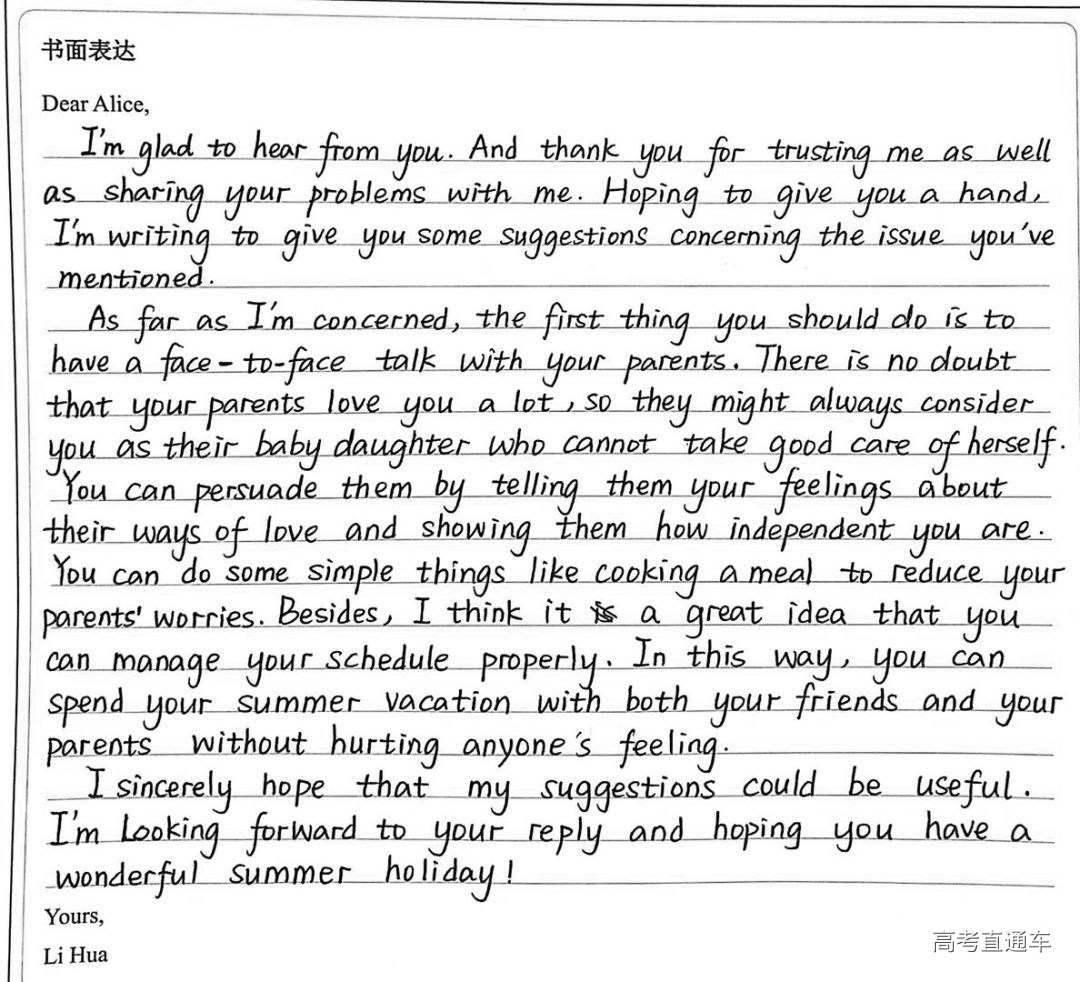 书面表达
Dear Alice,
I'm glad to hear from you. And thank you for trusting me as well
as sharing your problems with me. Hoping to give you a hand,
I'm writing to give you some suggestions concerning the issue you've
mentioned.
As far as I'm concerned, the first thing you should do is to
have a face-to-face talk with your parents. There is no doubt
that your parents love you a lot, so they might always consider
you as their baby daughter who cannot take good care of herself.
You can persuade them by telling them your feelings about
their ways of love and showing them how independent you are.
You can do some simple things like cooking a meal to reduce your
parents' worries. Besides, I think it is a great idea that you
can manage your schedule properly. In this way, you can
spend your summer vacation with both your friends and your
parents without hurting anyone's feeling.
I sincerely hope that my suggestions could be useful.
I'm looking forward to your reply and hoping you have a
wonderful summer holiday!
Yours,
Li Hua
高考直通车